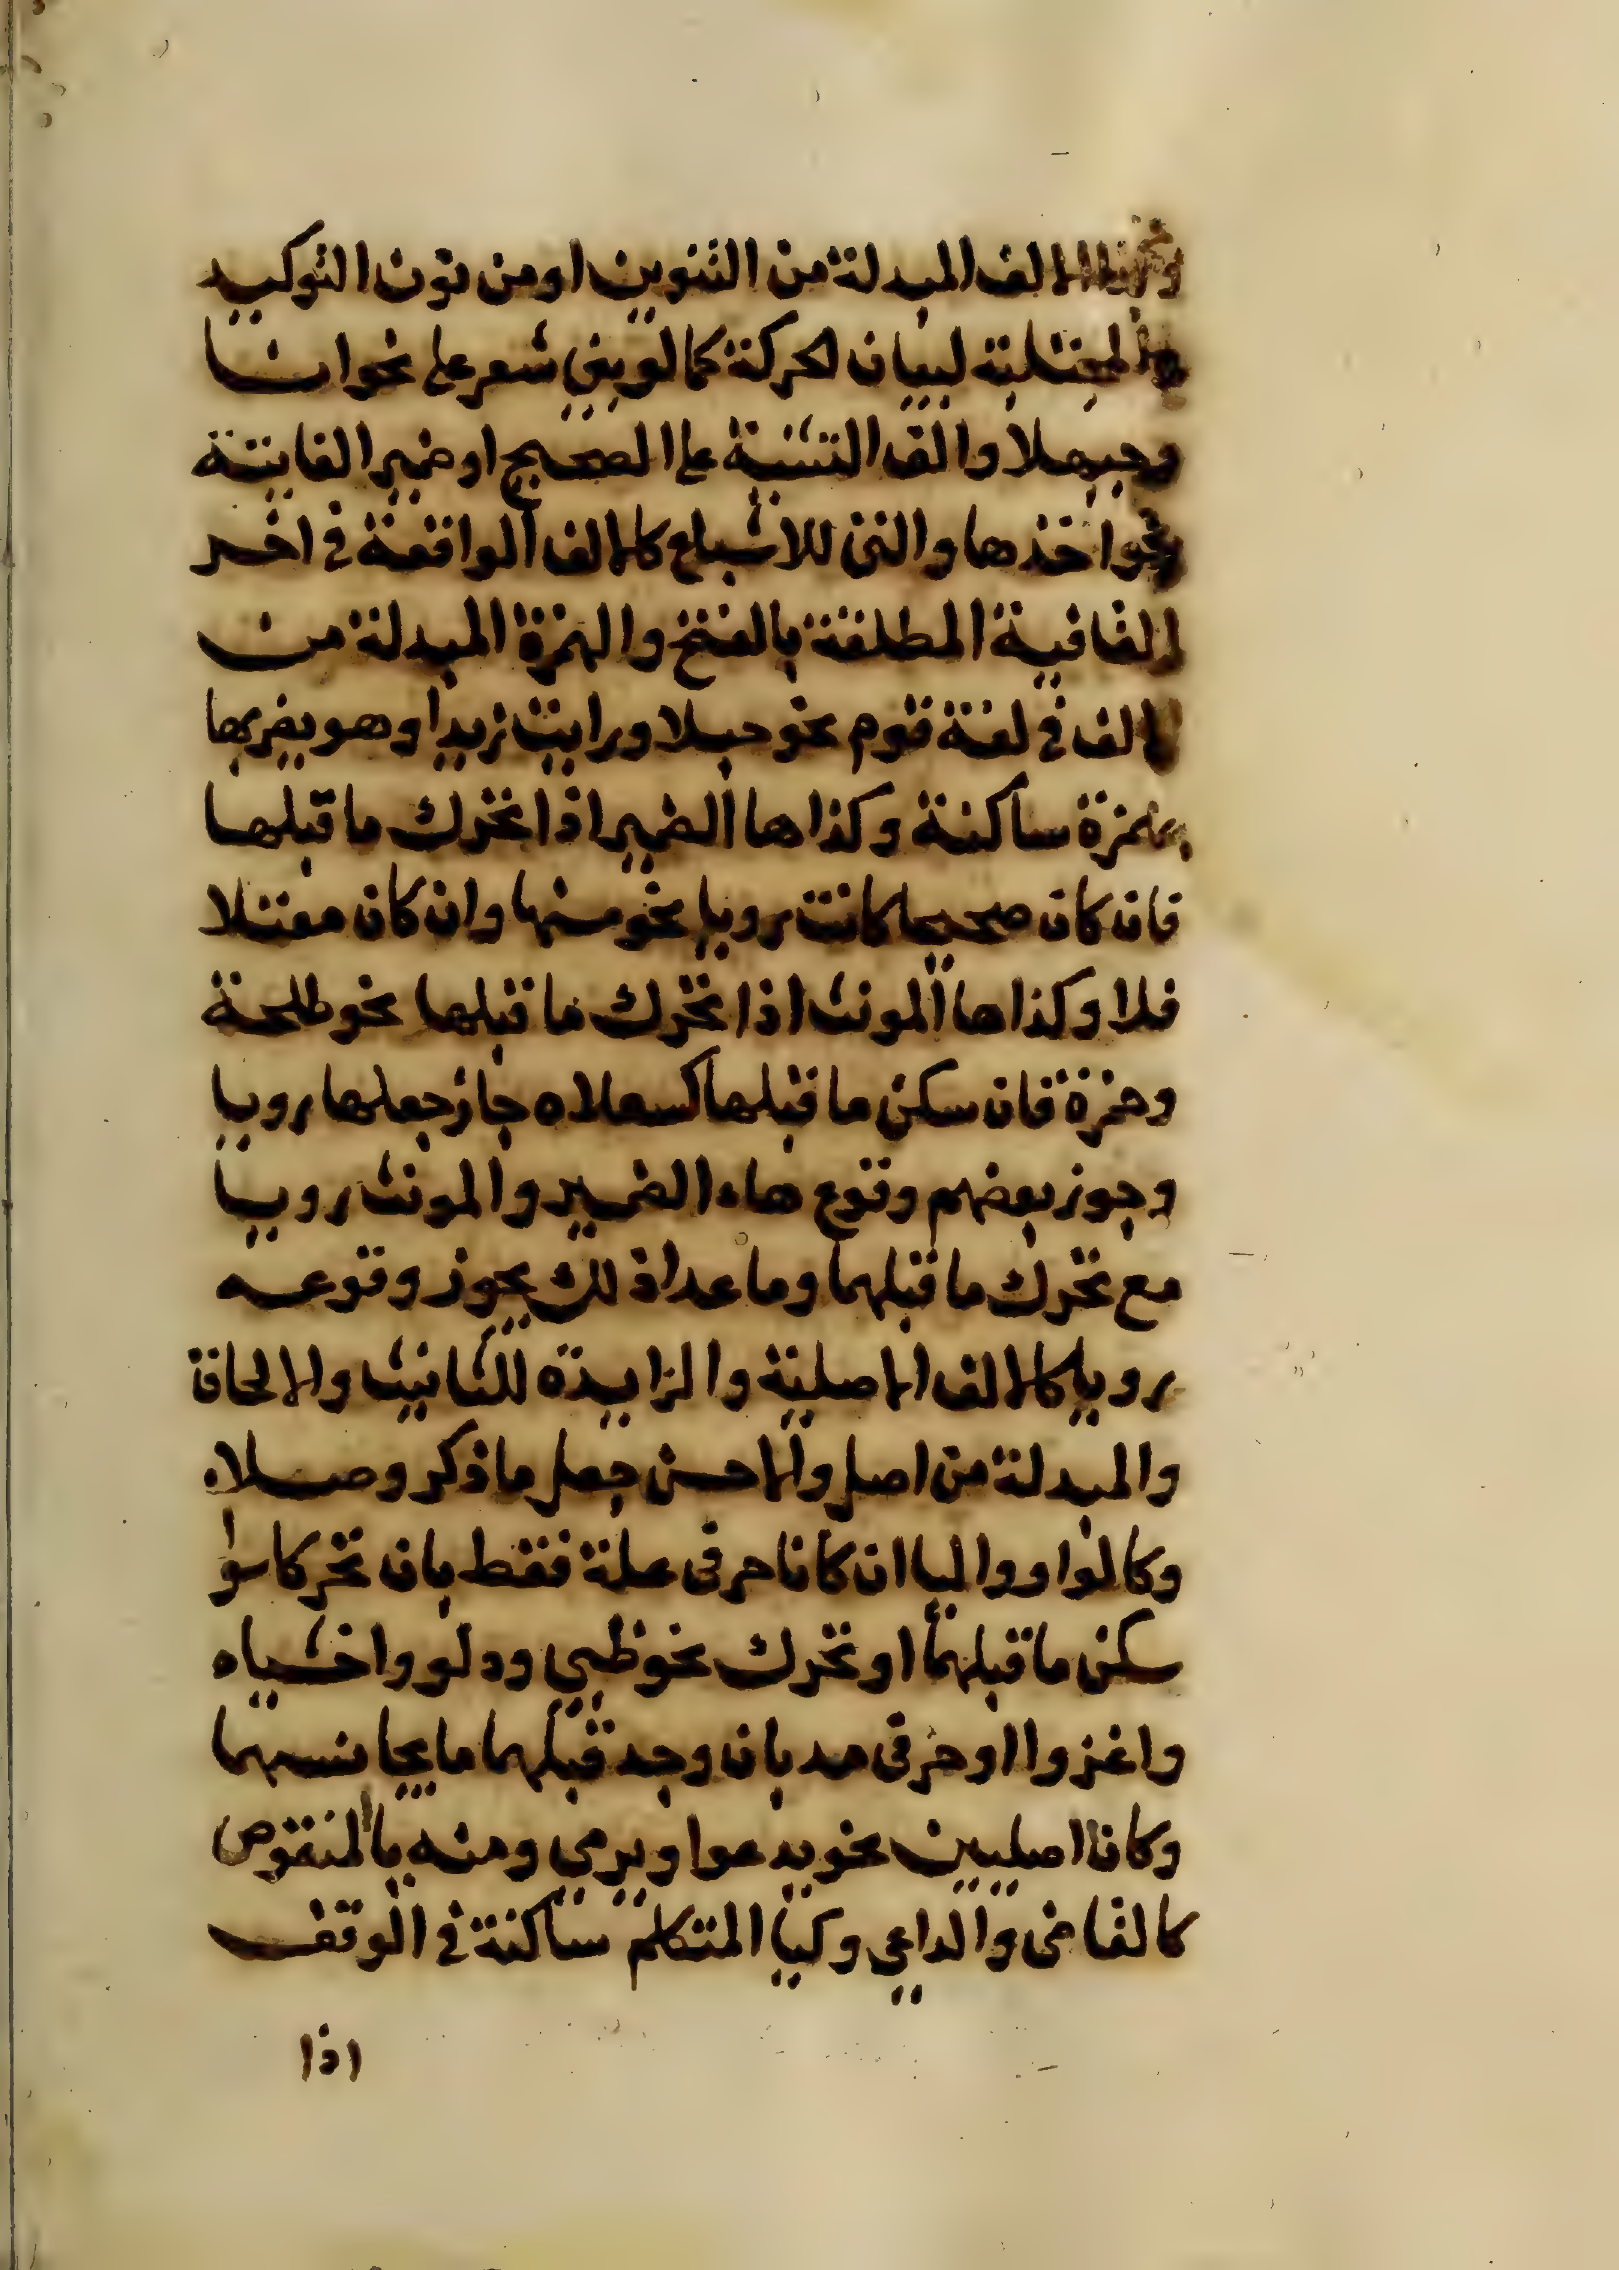 الالف المبدلة من التنوين او من نون التوكيد
المجتلبة لبيان الحركة كما لو بني شعر على نحو انا
وحيهلا والف التثنية على الصحيح او ضمير الغايبة
نحو اخذها والتى للاشباع كالالف الواقعة في اخر
القافية المطلقة بالفتح والهمزة المبدلة من
الالف في لغة قوم نحو حبلا ورايت زيدا وهو يضربها
بهمزة ساكنة وكذا ها الضمير اذا تحرك ما قبلها
فان كان صحيحا كانت رويا نحو منها وان كان معتلا
فلا وكذا ها المونث اذا تحرك ما قبلها نحو طلحة
وحمزة فان سكن ما قبلها كسعلاه جاز جعلها رويا
وجوز بعضهم وقوع هاء الضمير والمونث رويا
مع تحرك ما قبلهما وما عدا ذلك يجوز وقوعه
رويا كالالف الاصلية والزايدة للتانيث والالحاق
والمبدلة من اصل والاحسن جعل ما ذكر وصلاه
وكالواو واليا ان كانا حرفى علة فقط بان تحركا سوا
سكن ما قبلهما او تحرك نحو ظبي ودلو واخشياه
واغزوا او حرفى مد بان وجد قبلهما ما يجانسهما
وكانا اصليين نحو يدعوا ويرمي ومنه يا المنقوص
كالقاضى والداعي وكيا المتكلم ساكنة في الوقف
اذا